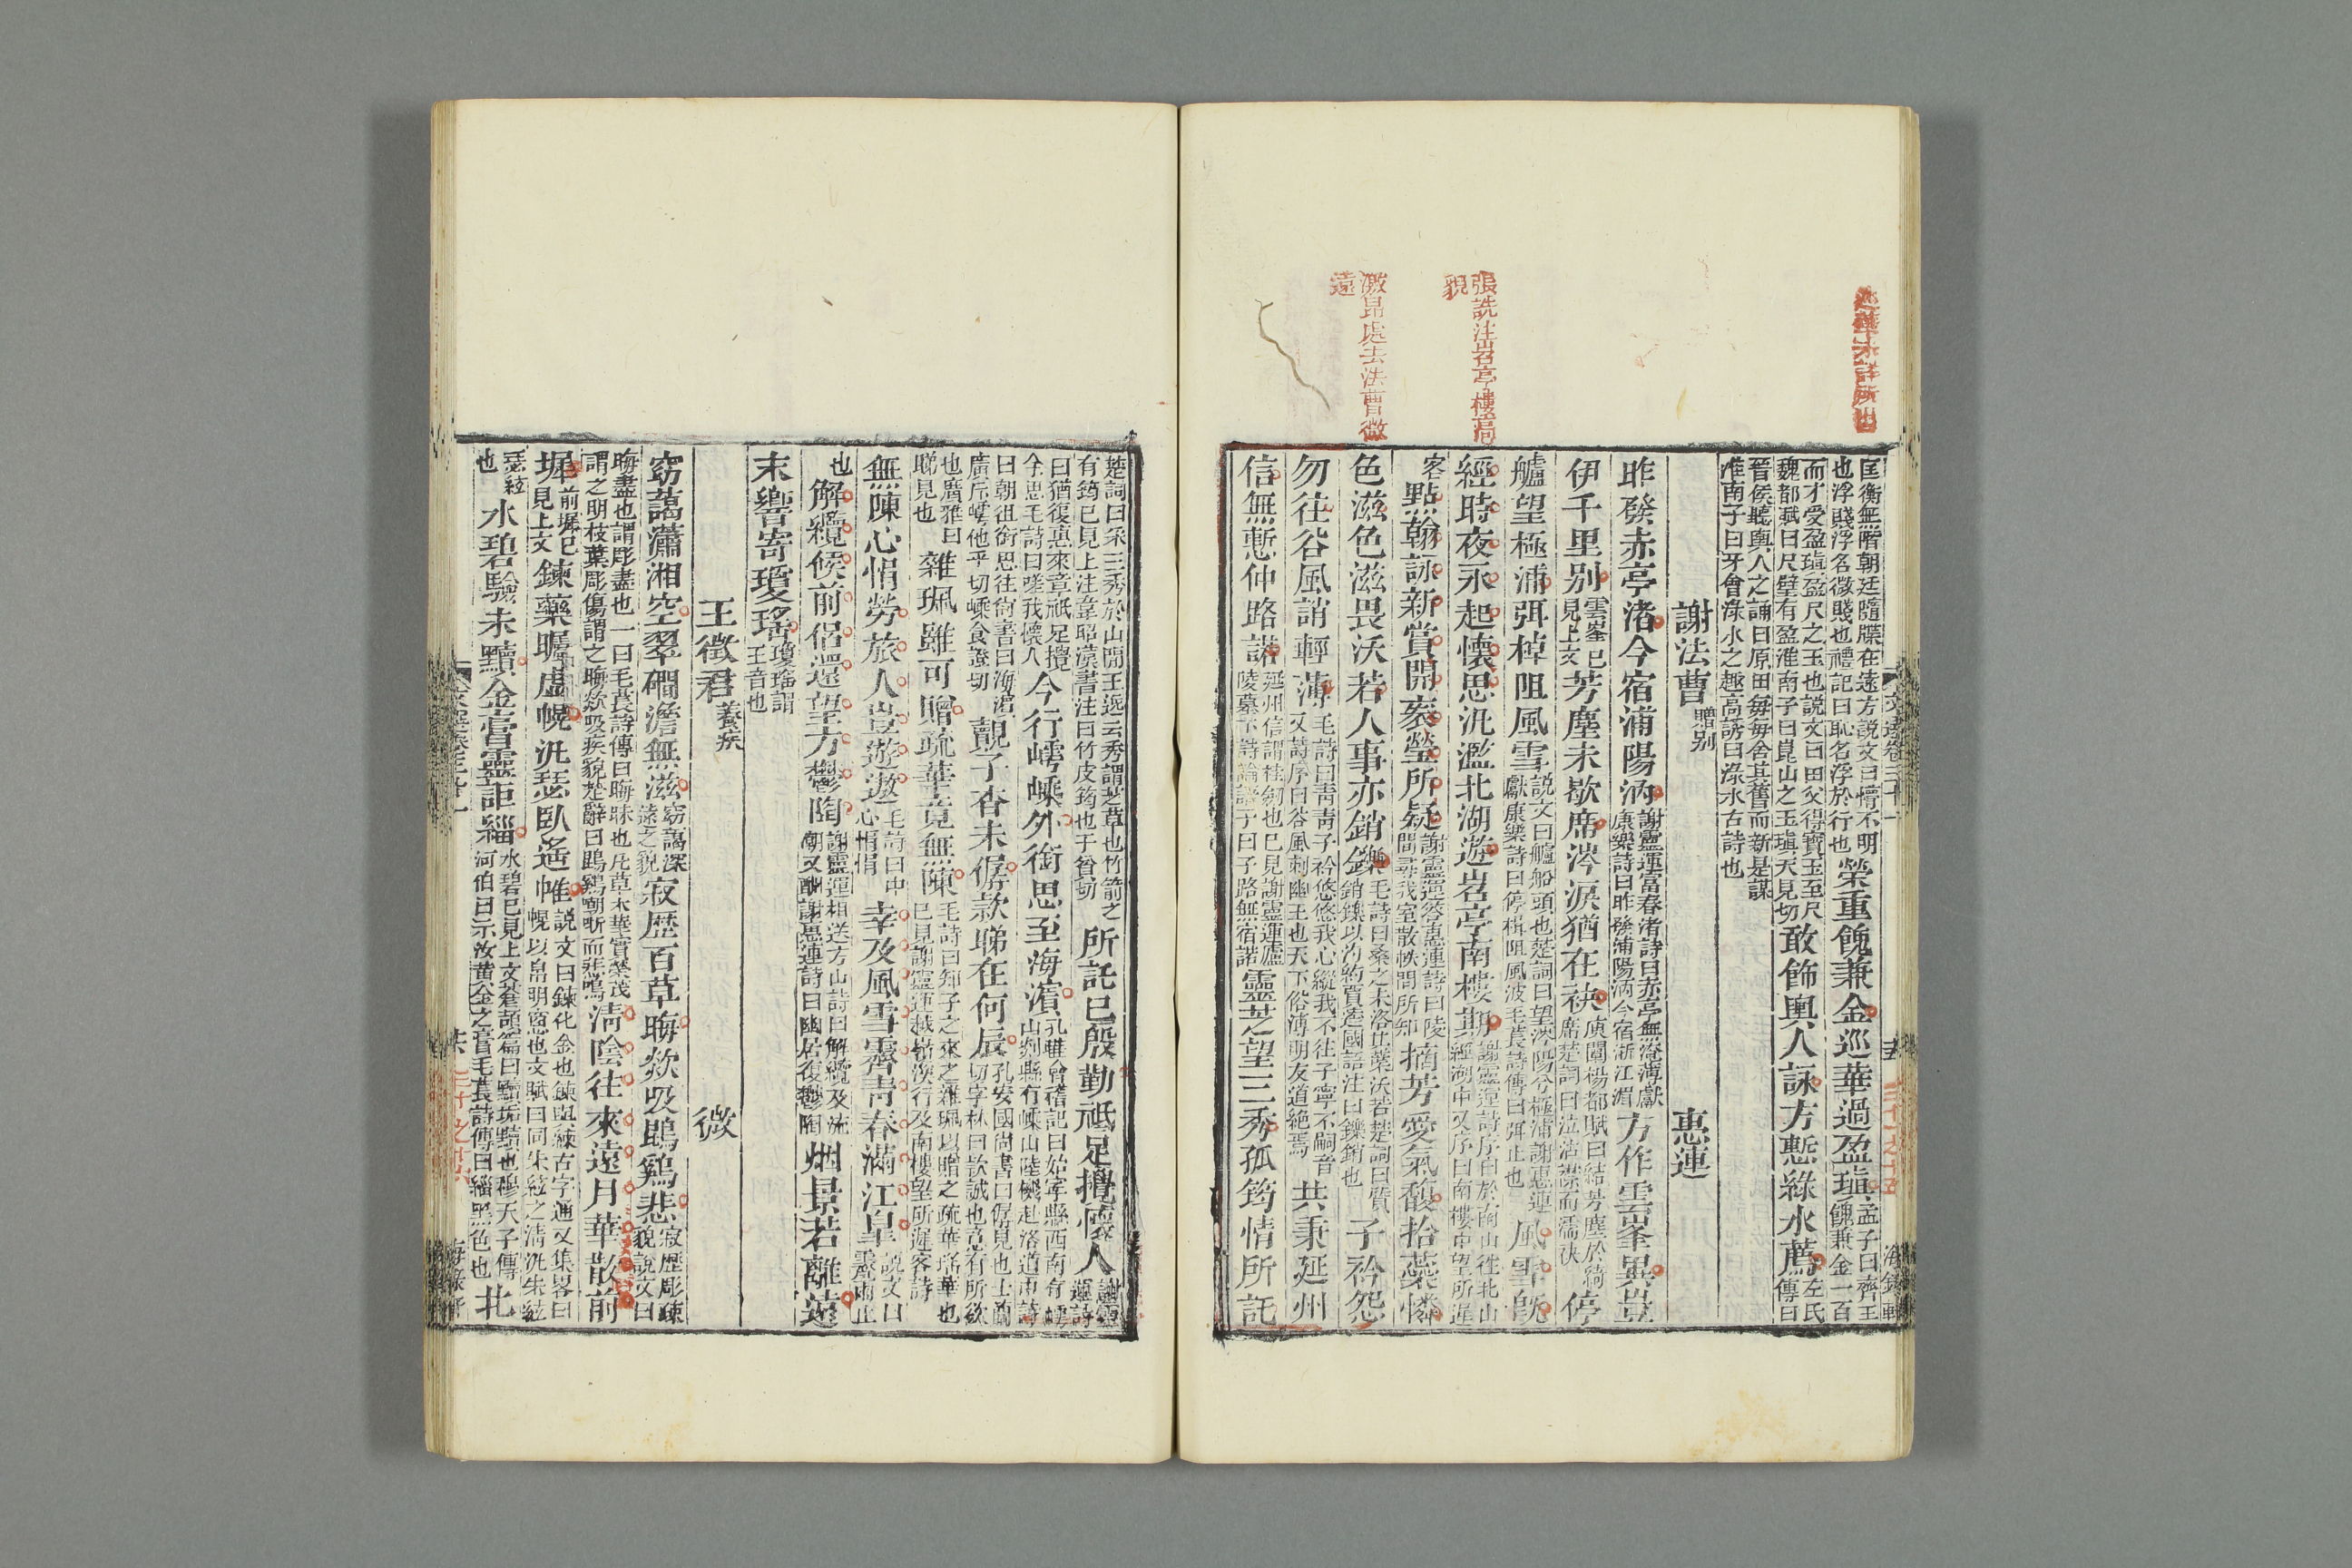 巡華
張詵注岧亭樓高
貌
激昻處去法曹微
遠
匡衡無階朝廷隨牒在遠方說文曰惰不明
也浮賤浮名微賤也禮記曰恥名浮於行也
榮重餽兼金巡華過盈瑱
孟子曰齊王
餽兼金一百
而才受盈瑱盈尺之玉也說文曰田父得寶玉至尺
魏都賦曰尺璧有盈淮南子曰崑山之玉瑱天見切
敢飾輿人詠方慙綠水薦
左氏
傳曰
晉侯聽輿人之誦曰原田每每舍其舊而新是謀
淮南子曰牙會淥水之趨高誘曰淥水古詩也
謝法曹
贈别
惠連
昨發赤亭渚今宿浦陽汭
謝靈運富春渚詩曰赤亭無淹薄獻
康樂詩曰昨發浦陽汭今宿浙江湄
方作雲峯異豈
伊千里别
雲峯已
見上文
芳塵未歇席涔淚猶在袂
庾闡楊都賦曰結芳塵於綺
席楚詞曰泣沾襟而濡袂
停
艫望極浦弭棹阻風雪
說文曰艫船頭也楚詞曰望涔陽兮極浦謝惠連
獻康樂詩曰停楫阻風波毛萇詩傳曰弭止也
風雪旣
經時夜永起懷思汎濫北湖遊岧亭南樓期
謝靈運詩序曰於南山往北山
經湖中又序曰南樓中望所遲
客
點翰詠新賞開袠瑩所疑
謝靈運答惠連詩曰陵
閒尋我室散帙問所知
摘芳愛氣馥拾蘂憐
色滋色滋畏沃若人事亦銷鑠
毛詩曰桑之未落其葉沃若楚詞曰質
銷鑠以汋約賈逵國語注曰鑠銷也
子衿怨
勿往谷風誚輕薄
毛詩曰青青子衿悠悠我心縱我不往子寧不嗣音
又詩序曰谷風刺幽王也天下俗薄朋友道絕焉
共秉延州
信無慙仲路諾
延州信謂挂劒也已見謝靈運廬
陵墓下詩論語子曰子路無宿諾
靈芝望三秀孤筠情所託
楚詞曰采三秀於山閒王逸云秀謂芝草也竹箭之
有筠已見上注韋昭漢書注曰竹皮筠也于貧切
所託已殷勤祗足攪懷人
謝靈
運詩
曰猶復惠來章祗足攪
余思毛詩曰嗟我懷人
今行嶀嵊外銜思至海濱
孔曄會稽記曰始寧縣西南有嶀
山剡縣有嵊山陸機赴洛道中詩
曰朝徂銜思往尙書曰海濱
廣斥嶀他乎切嵊食證切
覿子杳未僝款睇在何辰
孔安國尙書曰僝見也士簡
切字林曰款誠也意有所欲
也廣雅曰
睇見也
雜珮雖可贈疏華竟無陳
毛詩曰知子之來之雜珮以贈之疏華瑤華也
已見謝靈運越嶺溪行及南樓望所遲客詩
無陳心悁勞旅人豈遊遨
毛詩曰中
心悁悁
幸及風雪霽青春滿江皐
說文曰
霽雨止
也
解纜候前侶還望方鬱陶
謝靈運相送方山詩曰解纜及流
潮又酬謝惠連詩曰幽居復鬱陶
烟景若離遠
末響寄瓊瑤
瓊瑤謂
玉音也
王徵君
養疾
微
窈藹瀟湘空翠磵澹無滋
窈藹深
遠之貌
寂歷百草晦欻吸鵾鷄悲
寂歷彫疎
貌說文曰
晦盡也謂彫盡也一曰毛萇詩傳曰晦昧也凡草木華實榮茂
謂之明枝葉彫傷謂之晦欻吸疾貌楚辭曰鵾鷄啁哳而悲鳴
清陰往來遠月華散前
墀
前墀已
見上文
鍊藥矚虛幌汎瑟臥遙帷
說文曰鍊化金也鍊與練古字通又集畧曰
幌以帛明窻也文賦曰同朱絃之清汜朱絃
瑟絃
也
水碧驗未黷金膏靈詎緇
水碧已見上文蒼頡篇曰黷垢黯也穆天子傳
河伯曰示汝黃金之膏毛萇詩傳曰緇黑色也
北